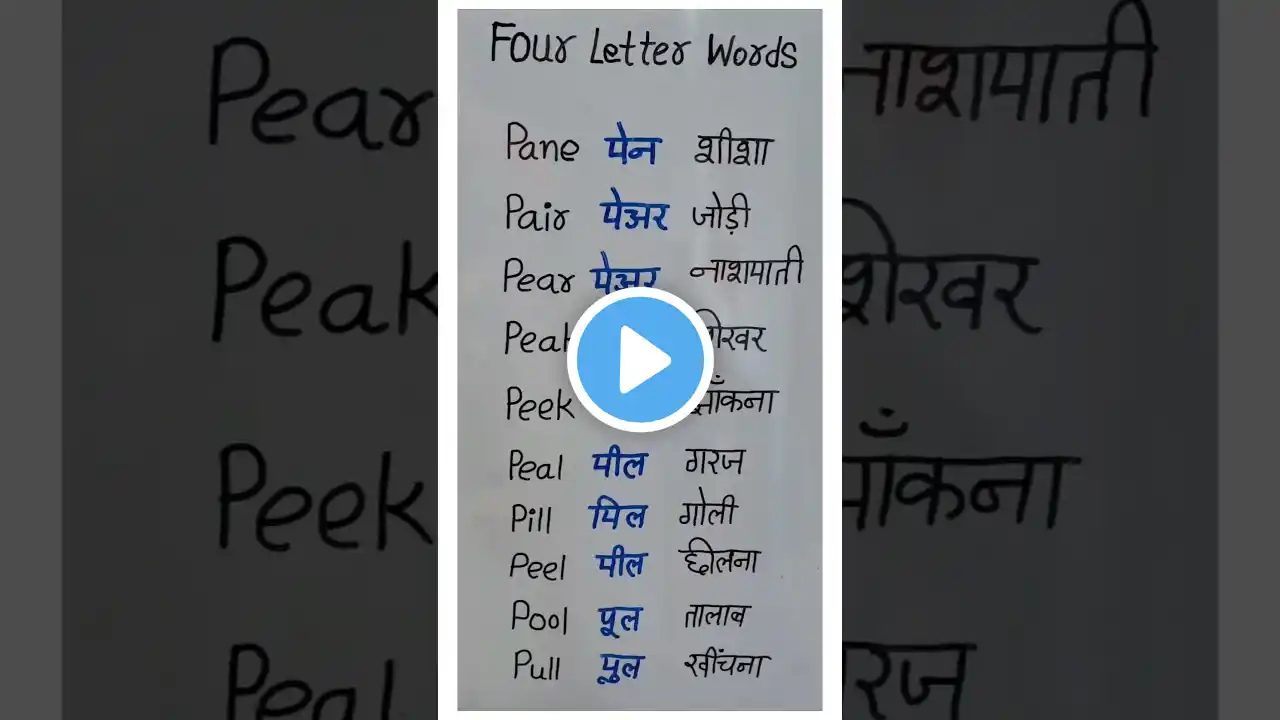 Four Letter Words
Pane पेन शीशा
Pair पेअर जोड़ी
Pear पेअर नाशपाती
Peak
Peek झाँकना
Peal पील गरज
Pill पिल गोली
Peel पील छीलना
Pool पूल तालाब
Pull पुल खींचना